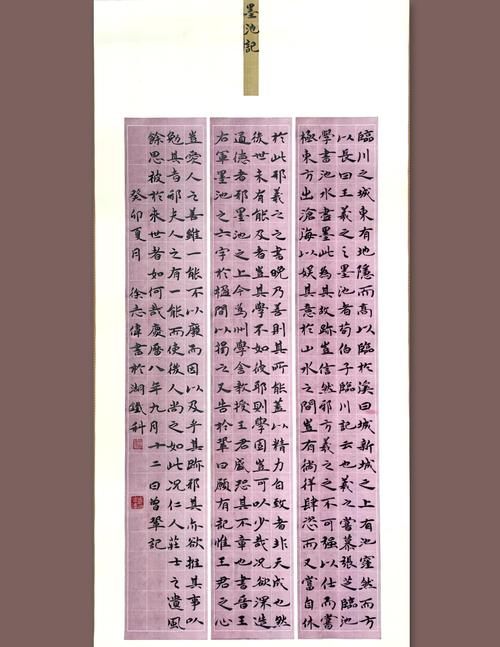 墨池記
臨川之城東有地隱而高以臨於溪曰城新城之上有池窪然而方
以長曰王羲之之墨池者荀伯子臨川記云也羲之嘗慕張芝臨池
學書池水盡墨此為其故跡豈信然邪方羲之之不可強以仕而嘗
極東方出滄海以娛其意於山水之間豈有徜徉肆恣而又嘗自休
於此邪羲之之書晚乃善則其所能蓋以精力自致者非天成也然
後世未有能及者豈其學不如彼耶則學固豈可以少哉況欲深造
道德者邪墨池之上今為州學舍教授王君盛恐其不章也書晉王
右軍墨池之六字於楹間以揭之又告於鞏曰願有記惟王君之心
豈愛人之善雖一能不以廢而因以及乎其跡邪其亦欲推其事以
勉其者邪夫人之有一能而使後人尚之如此況仁人莊士之遺風
餘思被於來世者如何哉慶曆八年九月十二日曾鞏記
癸卯夏月 徐志偉書於湖鐵科